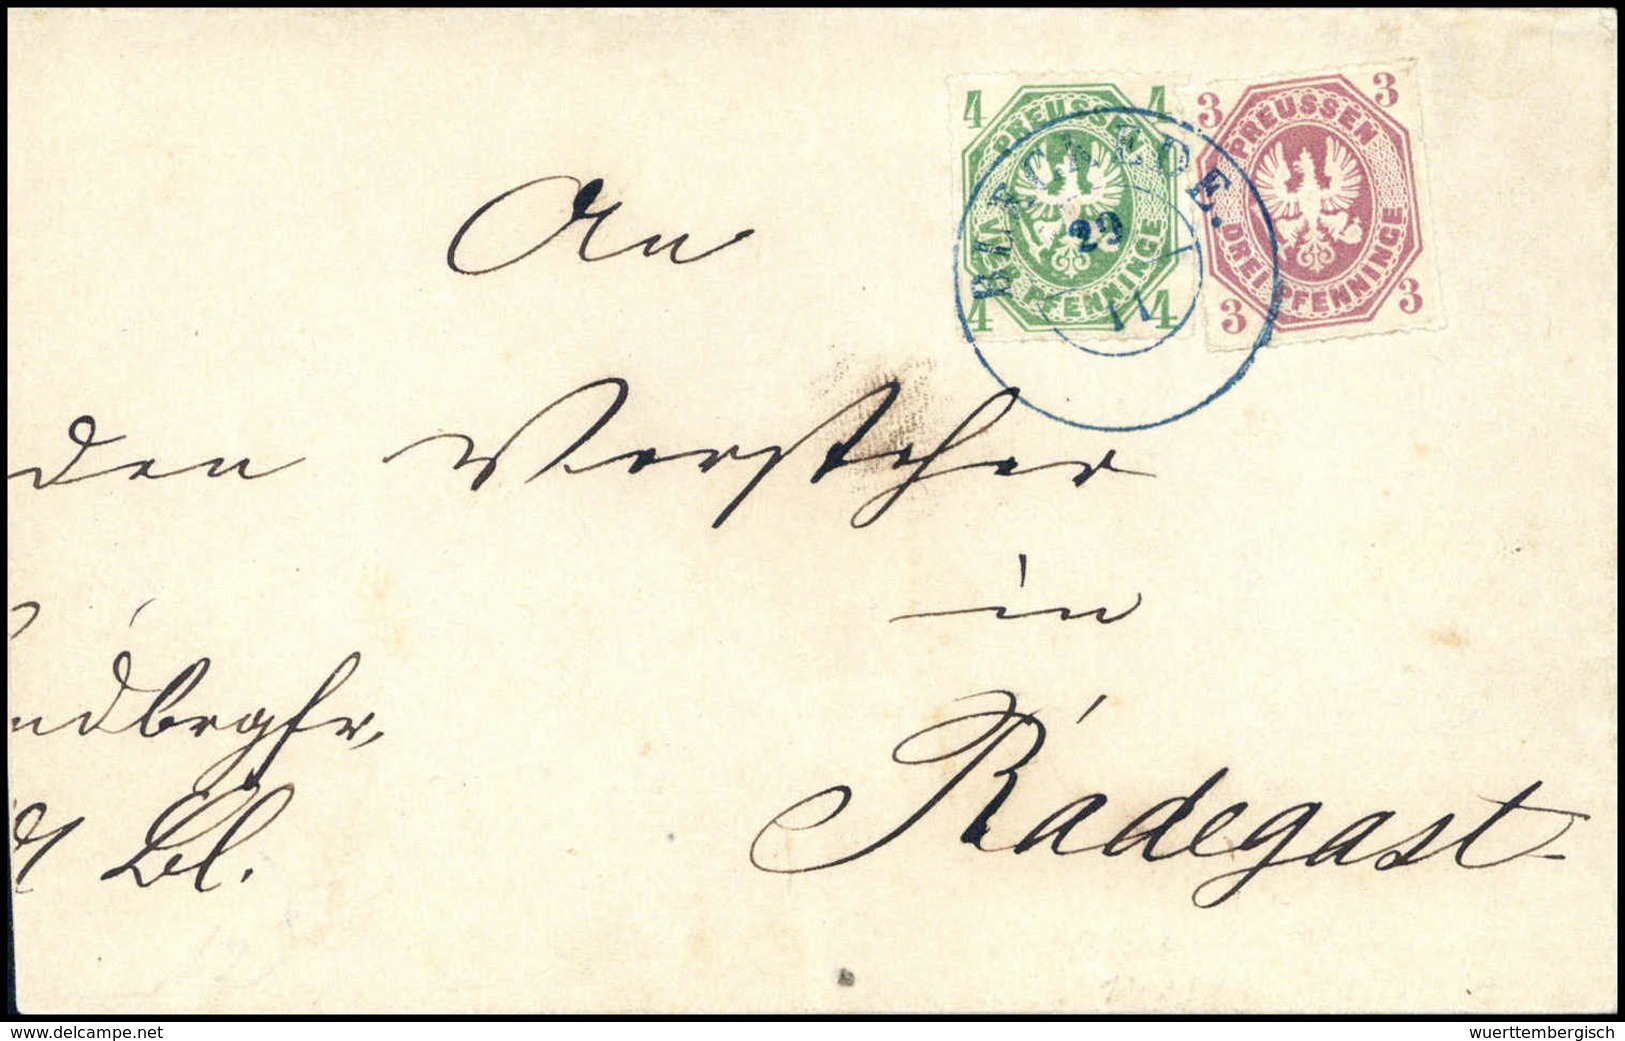 4 4
PREUSSEN
VIER PFENNINGE
4 4
3 3
PREUSSEN
DREI PFENNINGE
3 3
BLECKEDE.
29
11
An
den Vorsteher
in
Radegast
Bl.
www.delcampe.net
wuerttembergisch